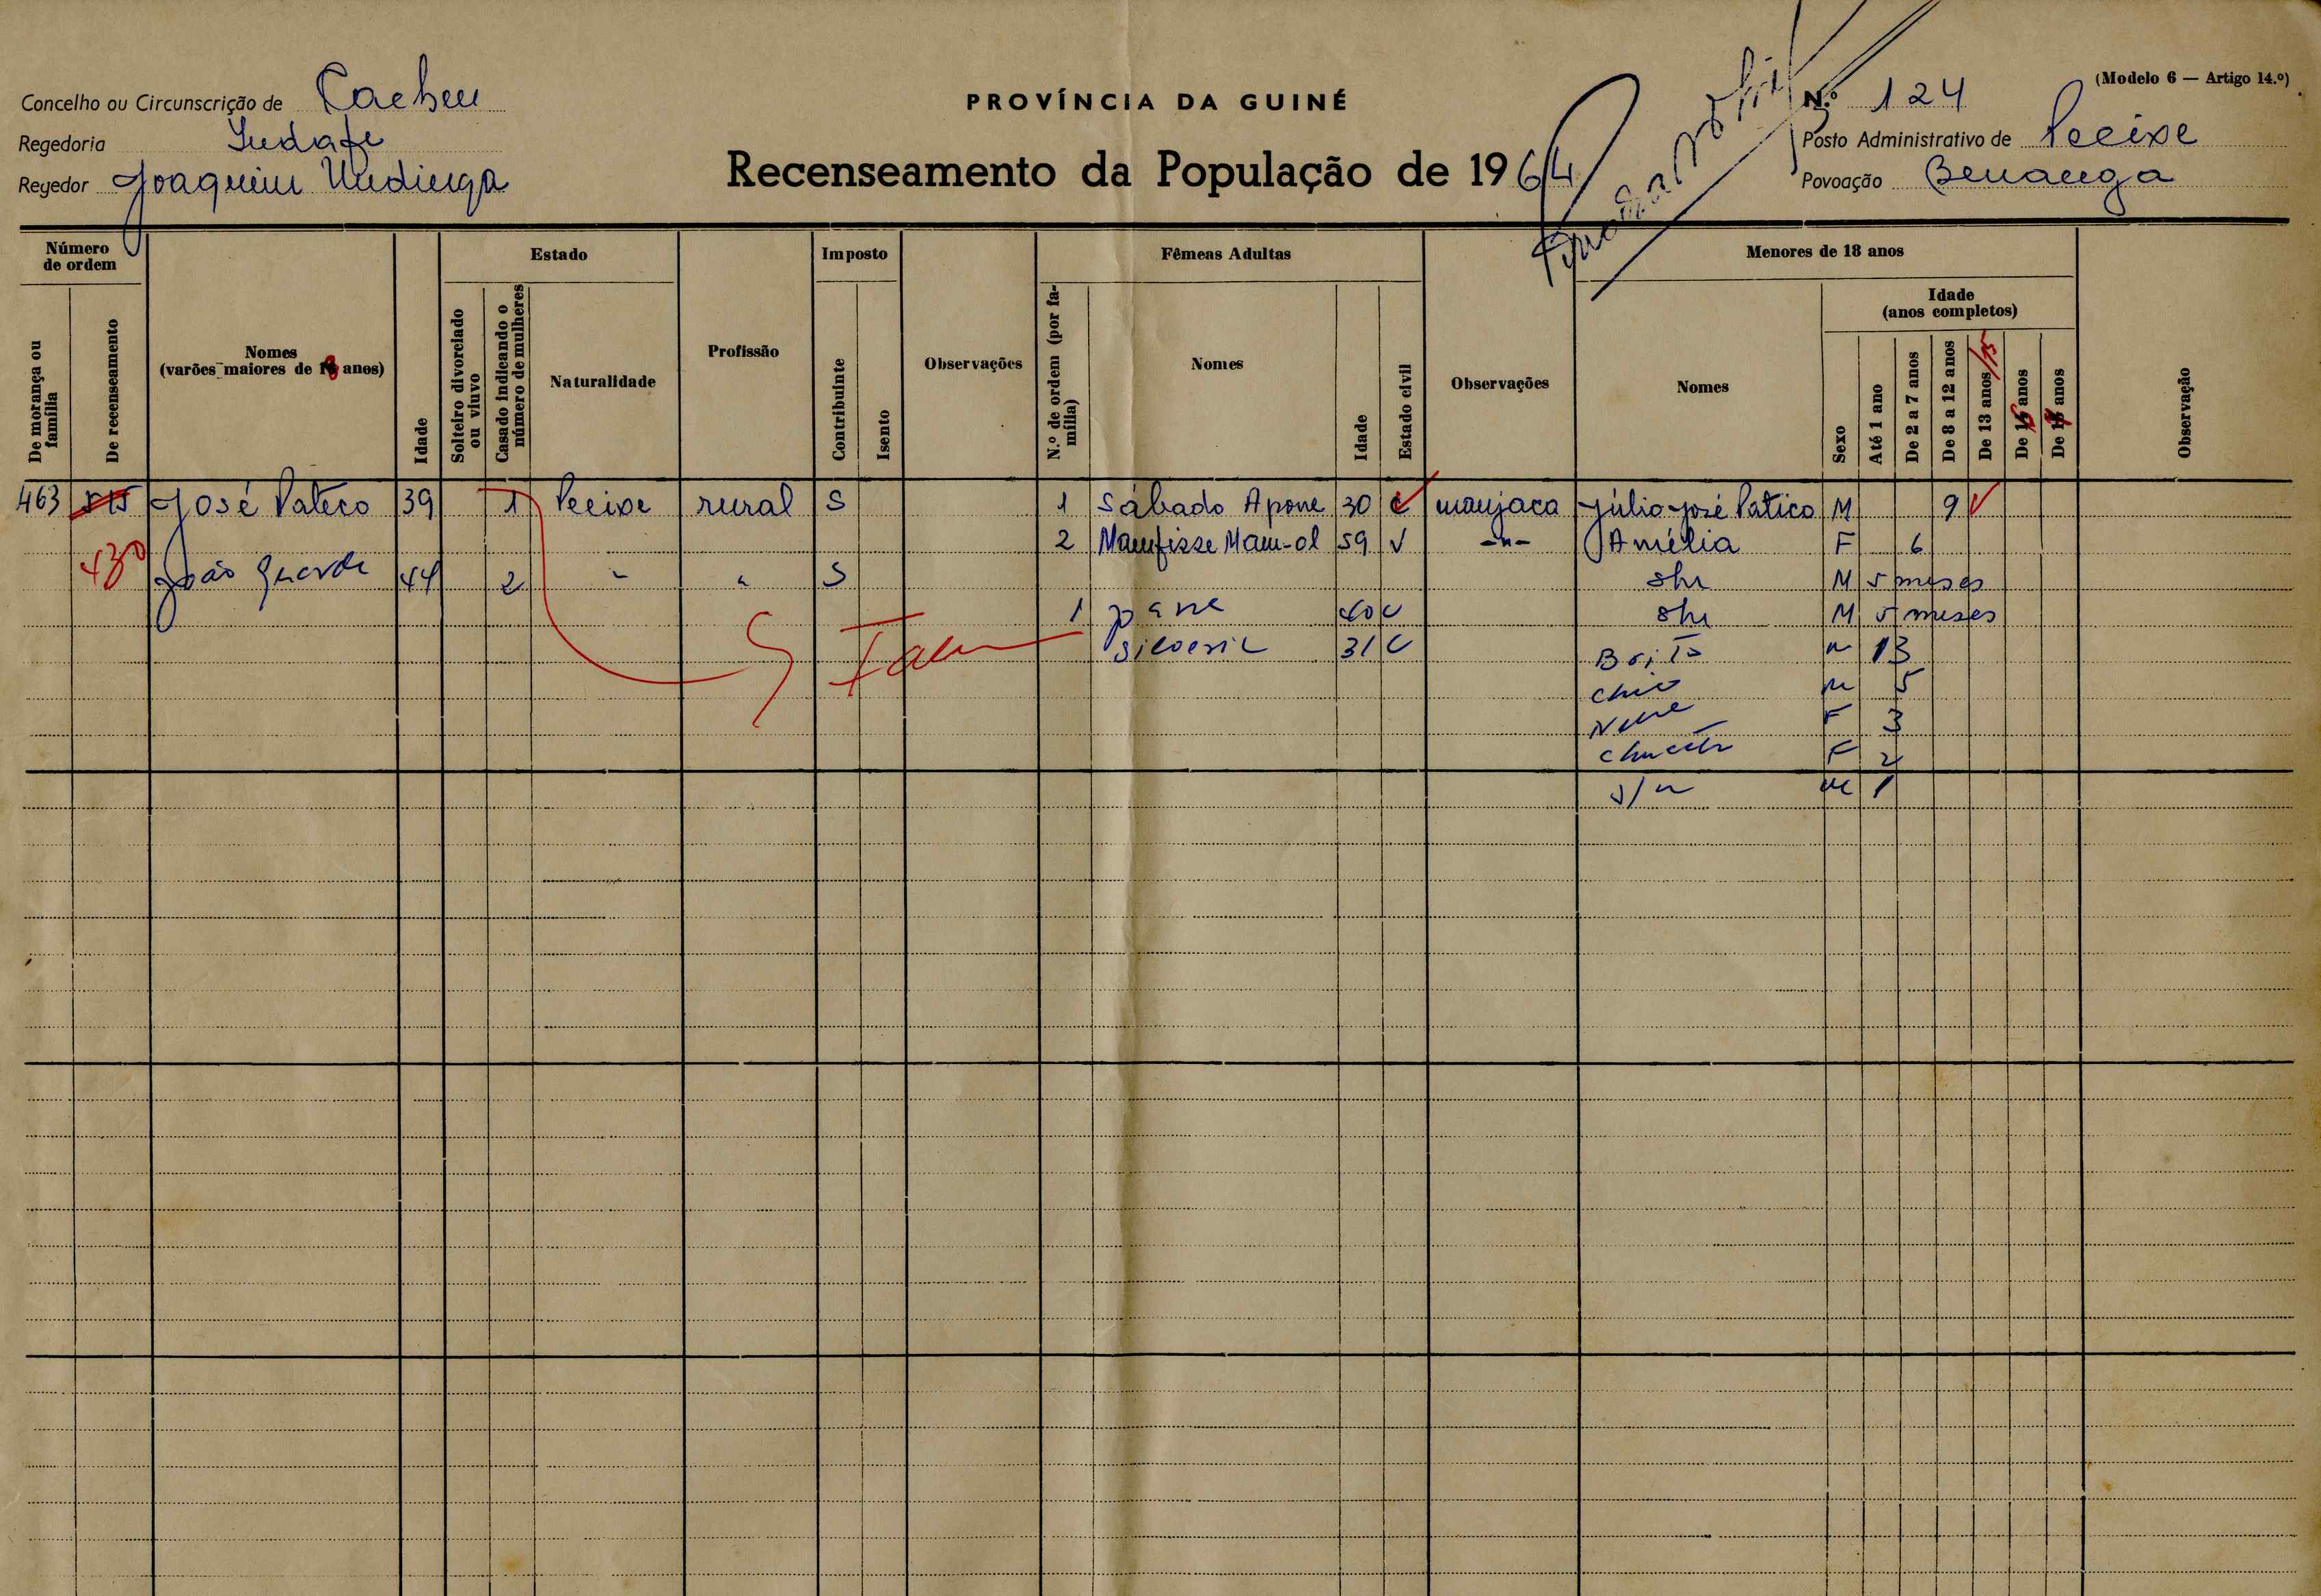 Concelho ou Circunscrição de Cacheu
Regedoria
Regedor Joaquim
PROVÍNCIA DA GUINÉ
Recenseamento da População de 1964
(Modelo 6 — Artigo 14.º)
N.º 124
Posto Administrativo de Pecixe
Povoação Benanga
Número de ordem
De morança ou família
De recenseamento
Nomes
(varões maiores de 18 anos)
Idade
Estado
Solteiro divorciado ou viuvo
Casado indicando o número de mulheres
Naturalidade
Profissão
Imposto
Contribuinte
Isento
Observações
Fêmeas Adultas
N.º de ordem (por família)
Nomes
Idade
Estado civil
Observações
Menores de 18 anos
Nomes
Idade
(anos completos)
Sexo
Até 1 ano
De 2 a 7 anos
De 8 a 12 anos
De 13 anos /15
De anos
De anos
Observação
463 José Pateco 39 1 Pecixe rural S 1 Sábado Apone 30 C manjaca Júlio José Patico M 9
2 Mam-ol 59 V -"- Amélia F 6
430 João 44 2 " " S M 5 meses
1 40 C M 5 meses
31 C Brito m 13
Chico m 5
F 3
F 2
s/n m 1